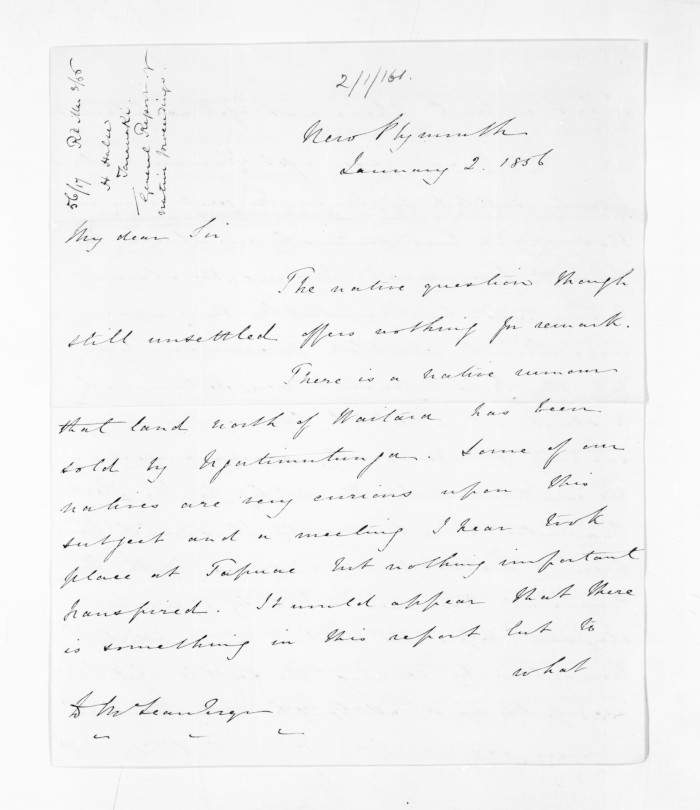 2/1/161.
56/17 Rd Mar 3/56
H Halse
Taranaki.
General Report of
native proceedings.
New Plymouth
January 2. 1856
My dear Sir
The native question though
still unsettled offers nothing for remark.
There is a native rumour
that land north of Waitara has been
sold by Ngatimutunga. Some of our
natives are very curious upon this
subject and a meeting I hear took
place at Tapuae but nothing important
transpired. It would appear that there
is something in this report but to
what
D McLean Esqre